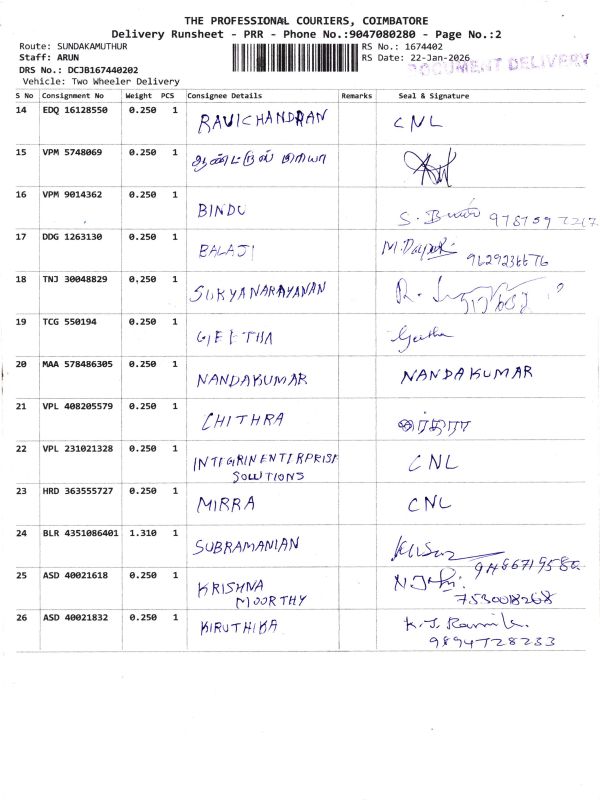 THE PROFESSIONAL COURIERS, COIMBATORE
Delivery Runsheet - PRR - Phone No.:9047080280 - Page No.:2
Route: SUNDAKAMUTHUR RS No.: 1674402
Staff: ARUN RS Date: 22-Jan-2026
DOCUMENT DELIVERY
DRS No.: DCJB167440202
Vehicle: Two Wheeler Delivery
S No Consignment No Weight PCS Consignee Details Remarks Seal & Signature
14 EDQ 16128550 0.250 1 RAVICHANDRAN CNL
15 VPM 5748069 0.250 1
16 VPM 9014362 0.250 1 BINDU S.
17 DDG 1263130 0.250 1 BALAJI M.
18 TNJ 30048829 0.250 1 SURYANARAYANAN R.
19 TCG 550194 0.250 1 GEETHA Geetha
20 MAA 578486305 0.250 1 NANDAKUMAR NANDAKUMAR
21 VPL 408205579 0.250 1 CHITHRA
22 VPL 231021328 0.250 1 INTEGRIN ENTERPRISE CNL
SOLUTIONS
23 HRD 363555727 0.250 1 MIRRA CNL
24 BLR 4351086401 1.310 1 SUBRAMANIAN
25 ASD 40021618 0.250 1 KRISHNA
MOORTHY
26 ASD 40021832 0.250 1 KIRUTHIKA K.J.
9894728233